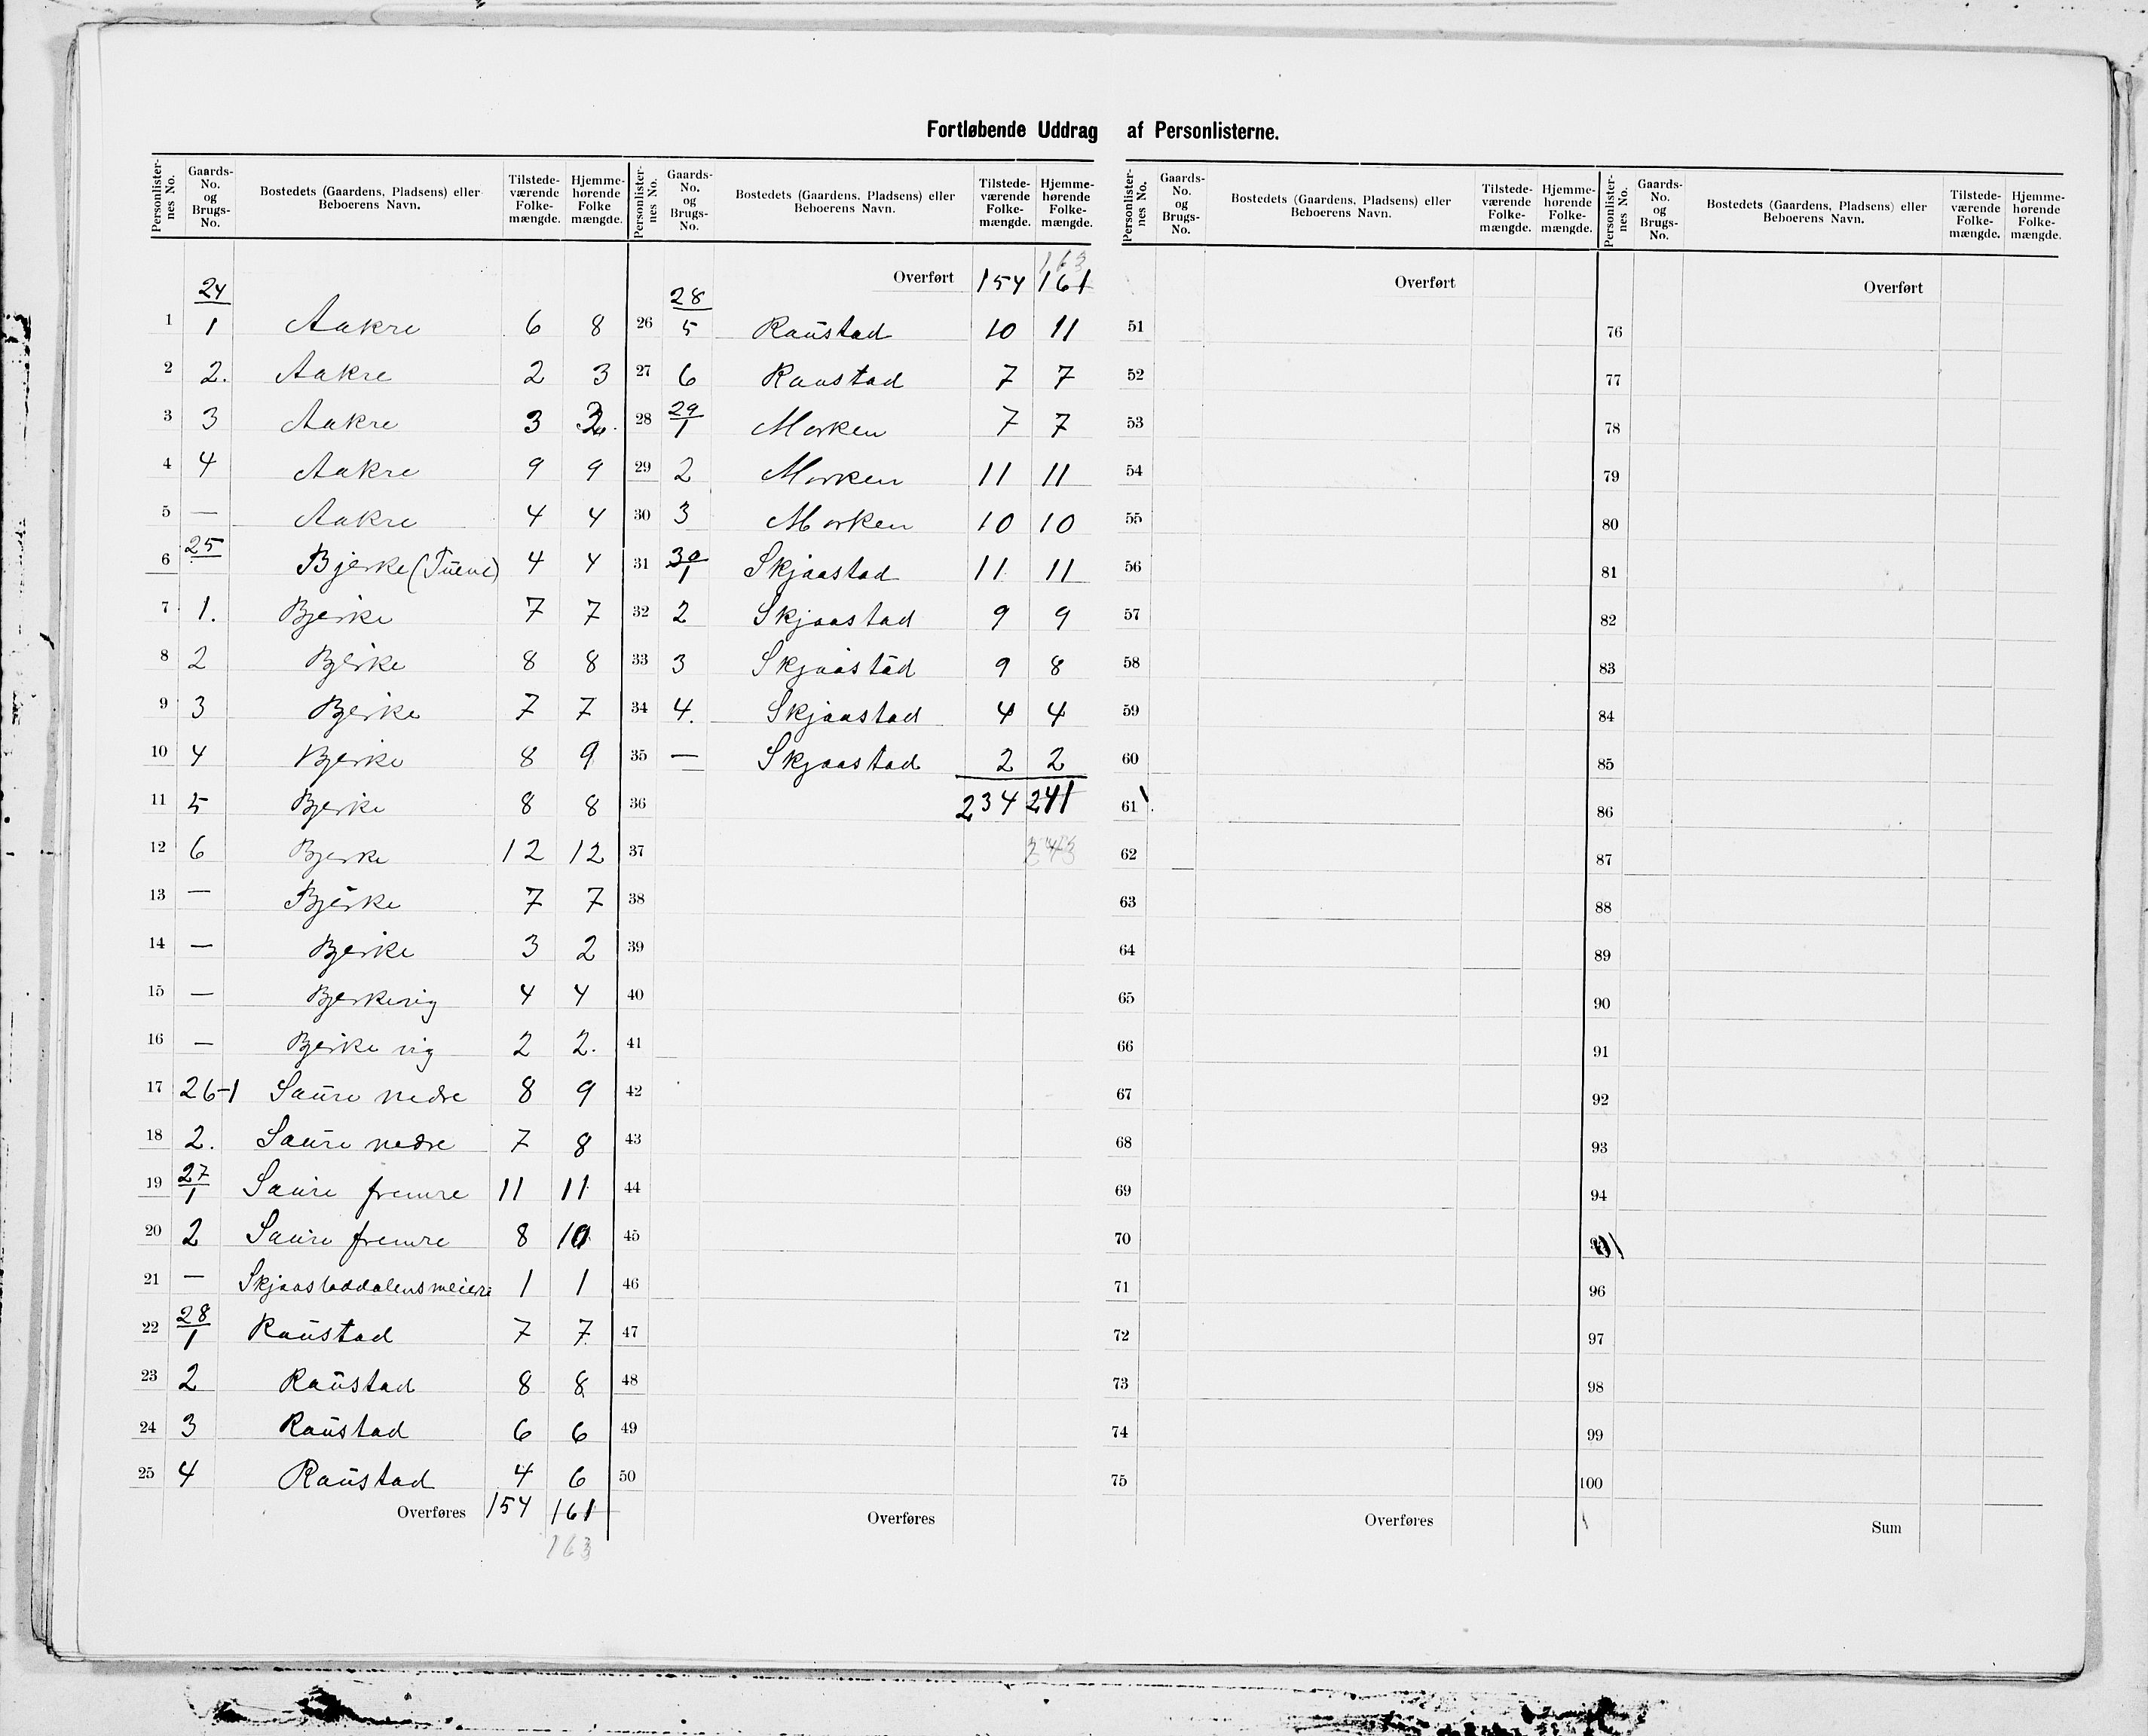 Fortløbende Uddrag af Personlisterne.
Personlister-nes No. Gaards-No. og Brugs-No. Bostedets (Gaardens, Pladsens) eller Beboerens Navn. Tilstede-værende Folke-mængde. Hjemme-hørende Folke mængde.
24
1 1 Aakre 6 8
2 2. Aakre 2 3
3 3 Aakre 3
4 4 Aakre 9 9
5 — Aakre 4 4
25
6 Bjerke 4 4
7 1. Bjerke 7 7
8 2 Bjerke 8 8
9 3 Bjerke 7 7
10 4 Bjerke 8 9
11 5 Bjerke 8 8
12 6 Bjerke 12 12
13 — Bjerke 7 7
14 — Bjerke 3 2
15 — Bjerkevig 4 4
16 — Bjerke vig 2 2.
17 26-1 Saure nedre 8 9
18 2. Saure nedre 7 8
27
19 1 Saure fremre 11 11
20 2 Saure fremre 8 10
21 — Skjaastaddalens meieri 1 1
28
22 1 Raustad 7 7
23 2 Raustad 8 8
24 3 Raustad 6 6
25 4 Raustad 4 6
Overføres 154 161
163
Personlister-nes No. Gaards-No. og Brugs-No. Bostedets (Gaardens, Pladsens) eller Beboerens Navn. Tilstede-værende Folke-mængde. Hjemme-hørende Folke-mængde.
163
Overført 154 161
28
26 5 Raustad 10 11
27 6 Raustad 7 7
29
28 1 Morken 7 7
29 2 Morken 11 11
30 3 Morken 10 10
30
31 1 Skjaastad 11 11
32 2 Skjaastad 9 9
33 3 Skjaastad 9 8
34 4. Skjaastad 4 4
35 — Skjaastad 2 2
36 234 241
37 243
38
39
40
41
42
43
44
45
46
47
48
49
50
Overføres
Personlister-nes No. Gaards-No. og Brugs-No. Bostedets (Gaardens, Pladsens) eller Beboerens Navn. Tilstede-værende Folke-mængde. Hjemme-hørende Folke-mængde.
Overført
51
52
53
54
55
56
57
58
59
60
61
62
63
64
65
66
67
68
69
70
71
72
73
74
75
Overføres
Personlister-nes No. Gaards-No. og Brugs-No. Bostedets (Gaardens, Pladsens) eller Beboerens Navn. Tilstede-værende Folke-mængde. Hjemme-hørende Folke-mængde.
Overført
76
77
78
79
80
81
82
83
84
85
86
87
88
89
90
91
92
93
94
96
97
98
99
100
Sum